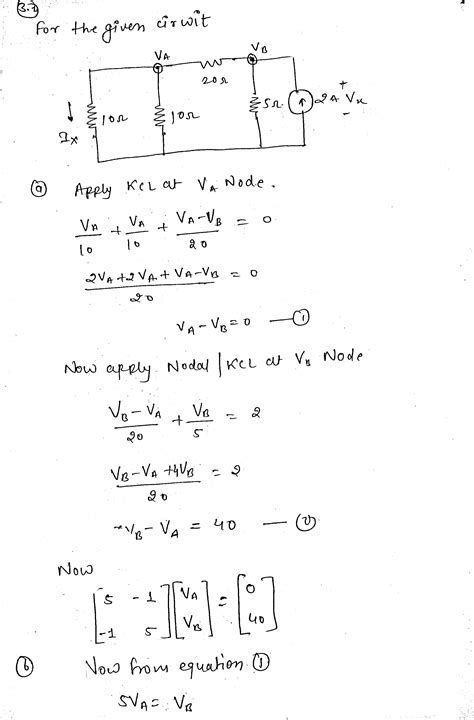 3.7
For the given cirwit
VA VB
20Ω
Ix 10Ω 10Ω 5Ω 2A + Vx -
(a) Apply KCL at VA Node.
VA/10 + VA/10 + (VA-VB)/20 = 0
(2VA+2VA+VA-VB)/20 = 0
VA-VB=0 —(1)
Now apply Nodal | KCL at VB Node
(VB-VA)/20 + VB/5 = 2
(VB-VA+4VB)/20 = 2
VB-VA = 40
Now
[5 -1; -1 5] [VA; VB] = [0; 40]
(b) Now from equation (1)
5VA = VB